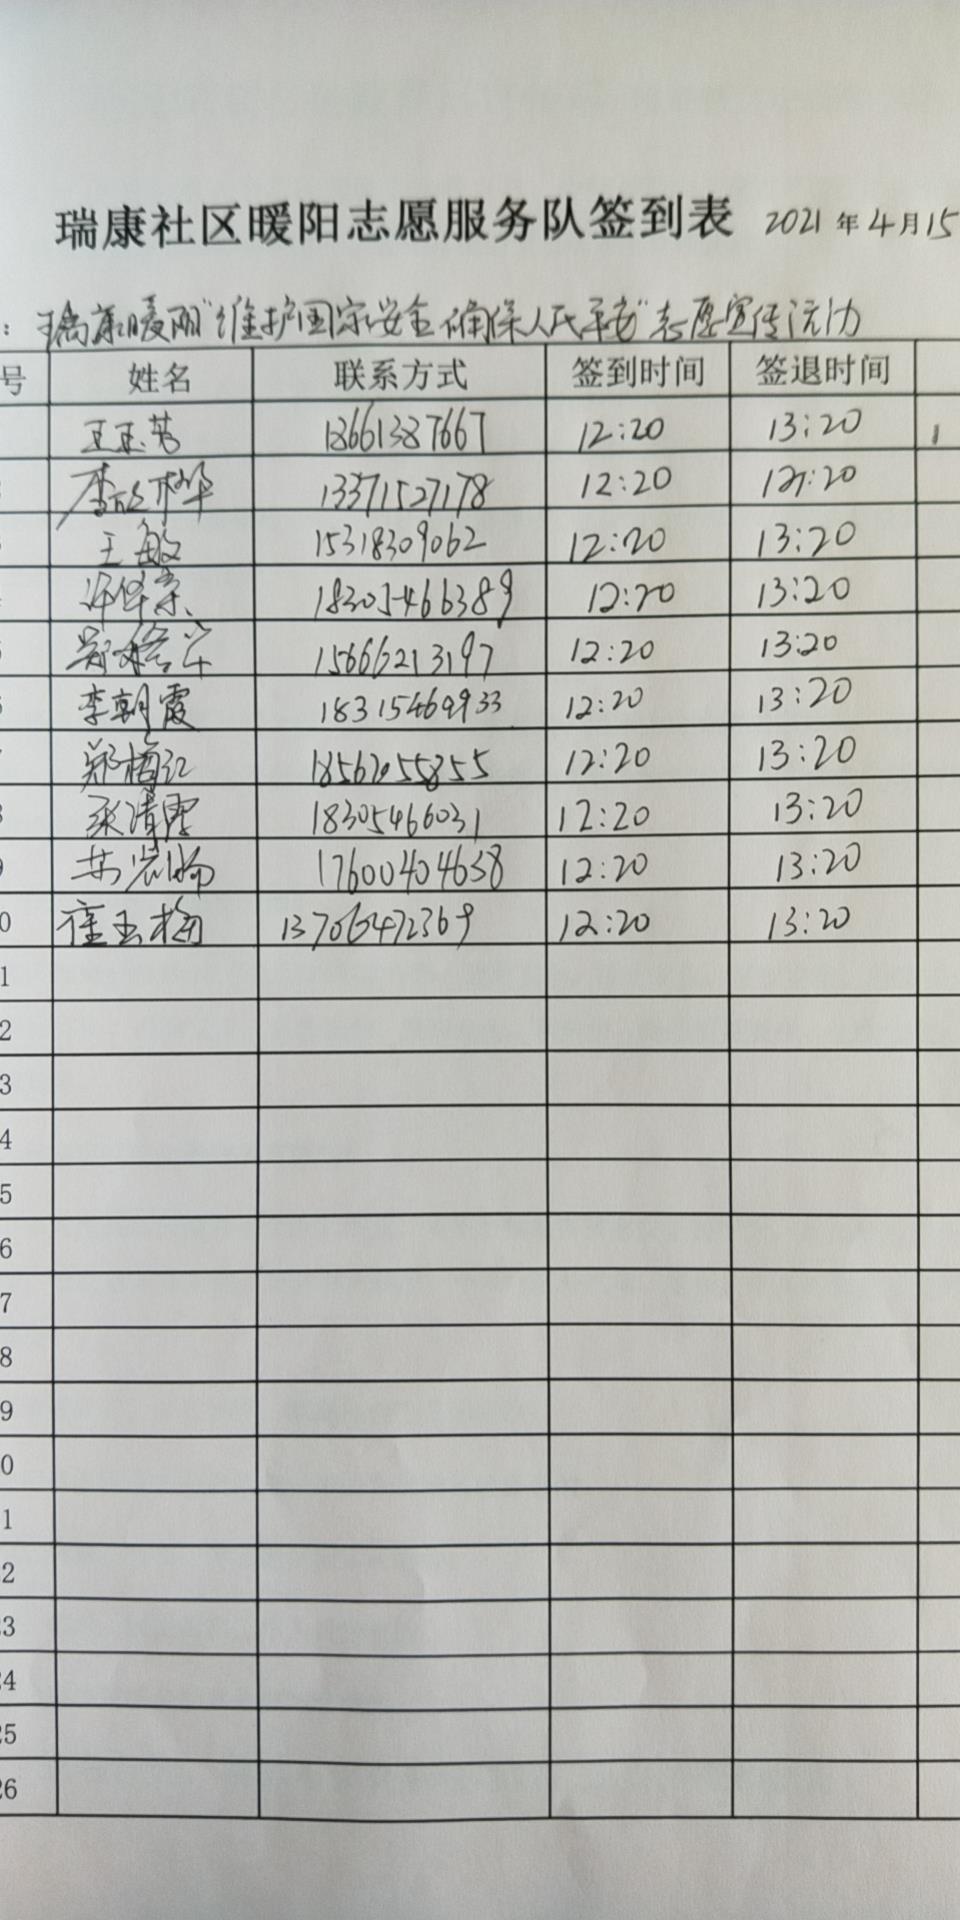 瑞康社区暖阳志愿服务队签到表 2021年4月15
：瑞康暖阳"维护国家安全 确保人民平安"志愿宣传活动
号 姓名 联系方式 签到时间 签退时间
王玉芳 18661387667 12:20 13:20
李欣桦 13371527178 12:20 13:20
王敏 15318309062 12:20 13:20
18305466389 12:20 13:20
15666213197 12:20 13:20
李朝霞 18315469933 12:20 13:20
郑梅红 18562055855 12:20 13:20
张清霞 18305466031 12:20 13:20
17600404638 12:20 13:20
0 崔玉梅 13706472369 12:20 13:20
1
2
3
4
5
6
7
8
9
0
1
2
3
24
25
26